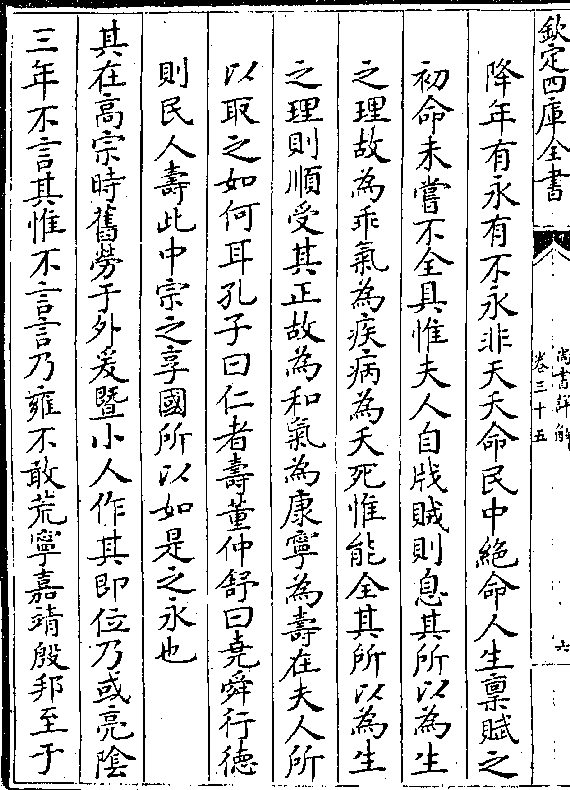 欽定四庫全書
尚書詳解
卷三十五
六
降年有永有不永非天夭命民中絶命人生稟賦之
初命未嘗不全具惟夫人自戕賊則息其所以為生
之理故為乖氣為疾病為夭死惟能全其所以為生
之理則順受其正故為和氣為康寧為壽在夫人所
以取之如何耳孔子曰仁者壽董仲舒曰堯舜行德
則民人壽此中宗之享國所以如是之永也
其在高宗時舊勞于外爰暨小人作其即位乃或亮陰
三年不言其惟不言言乃雍不敢荒寧嘉靖殷邦至于